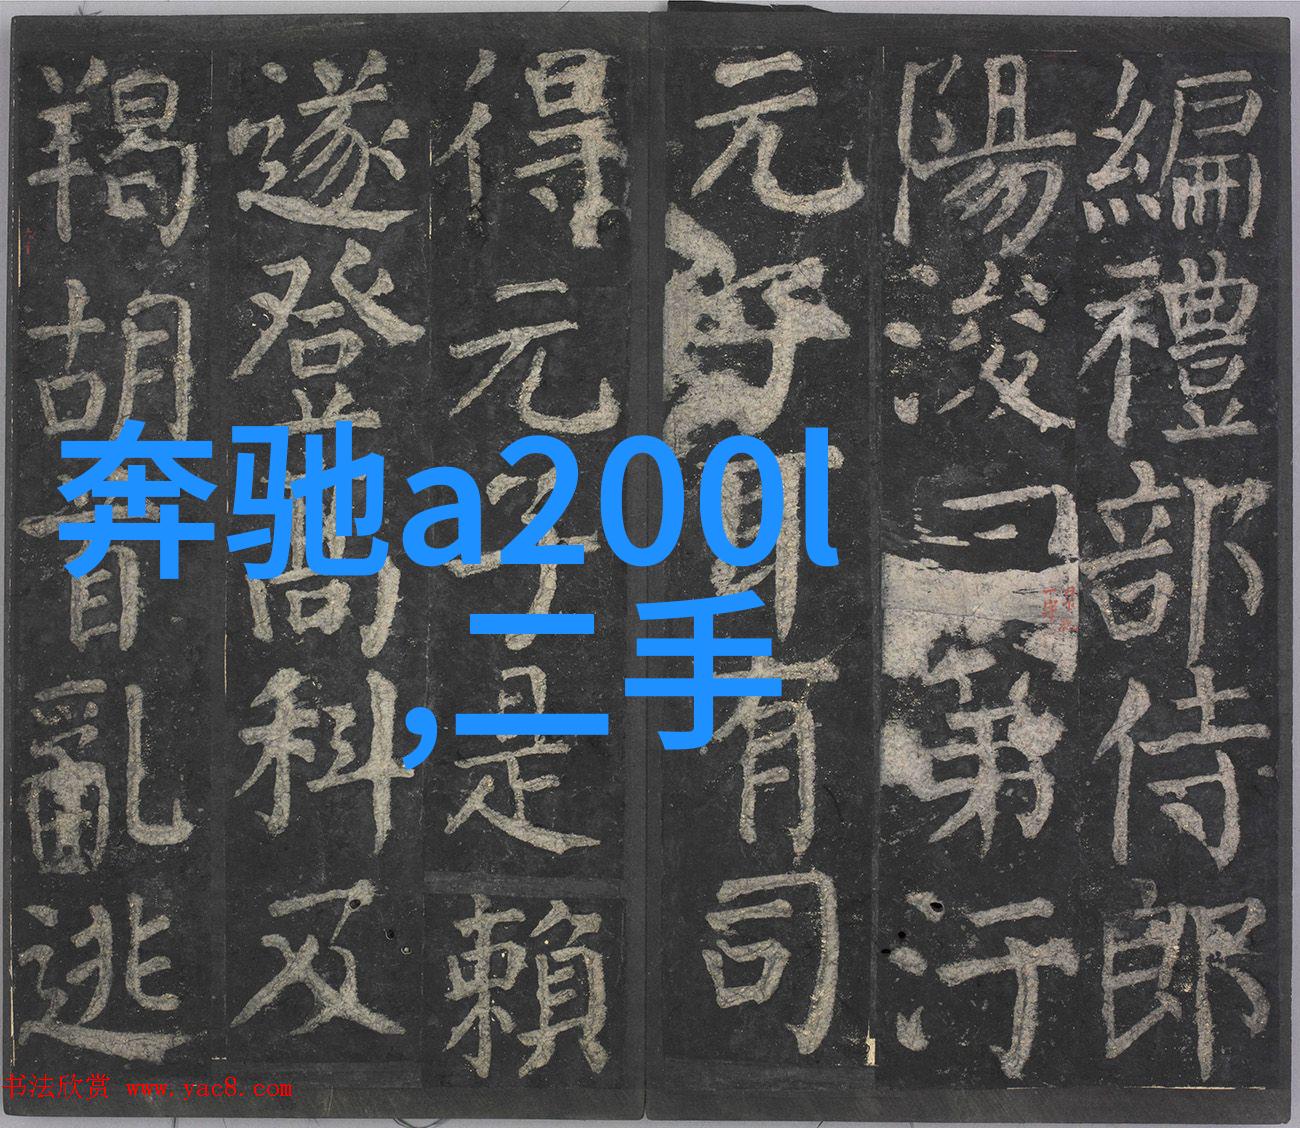 編禮部侍郎
陽浚曰第汙
元子耳有司
得元子是賴
遂登高科及
羯胡首亂逃
奔驰a200l
,二手
书法欣赏 www.yac8.com